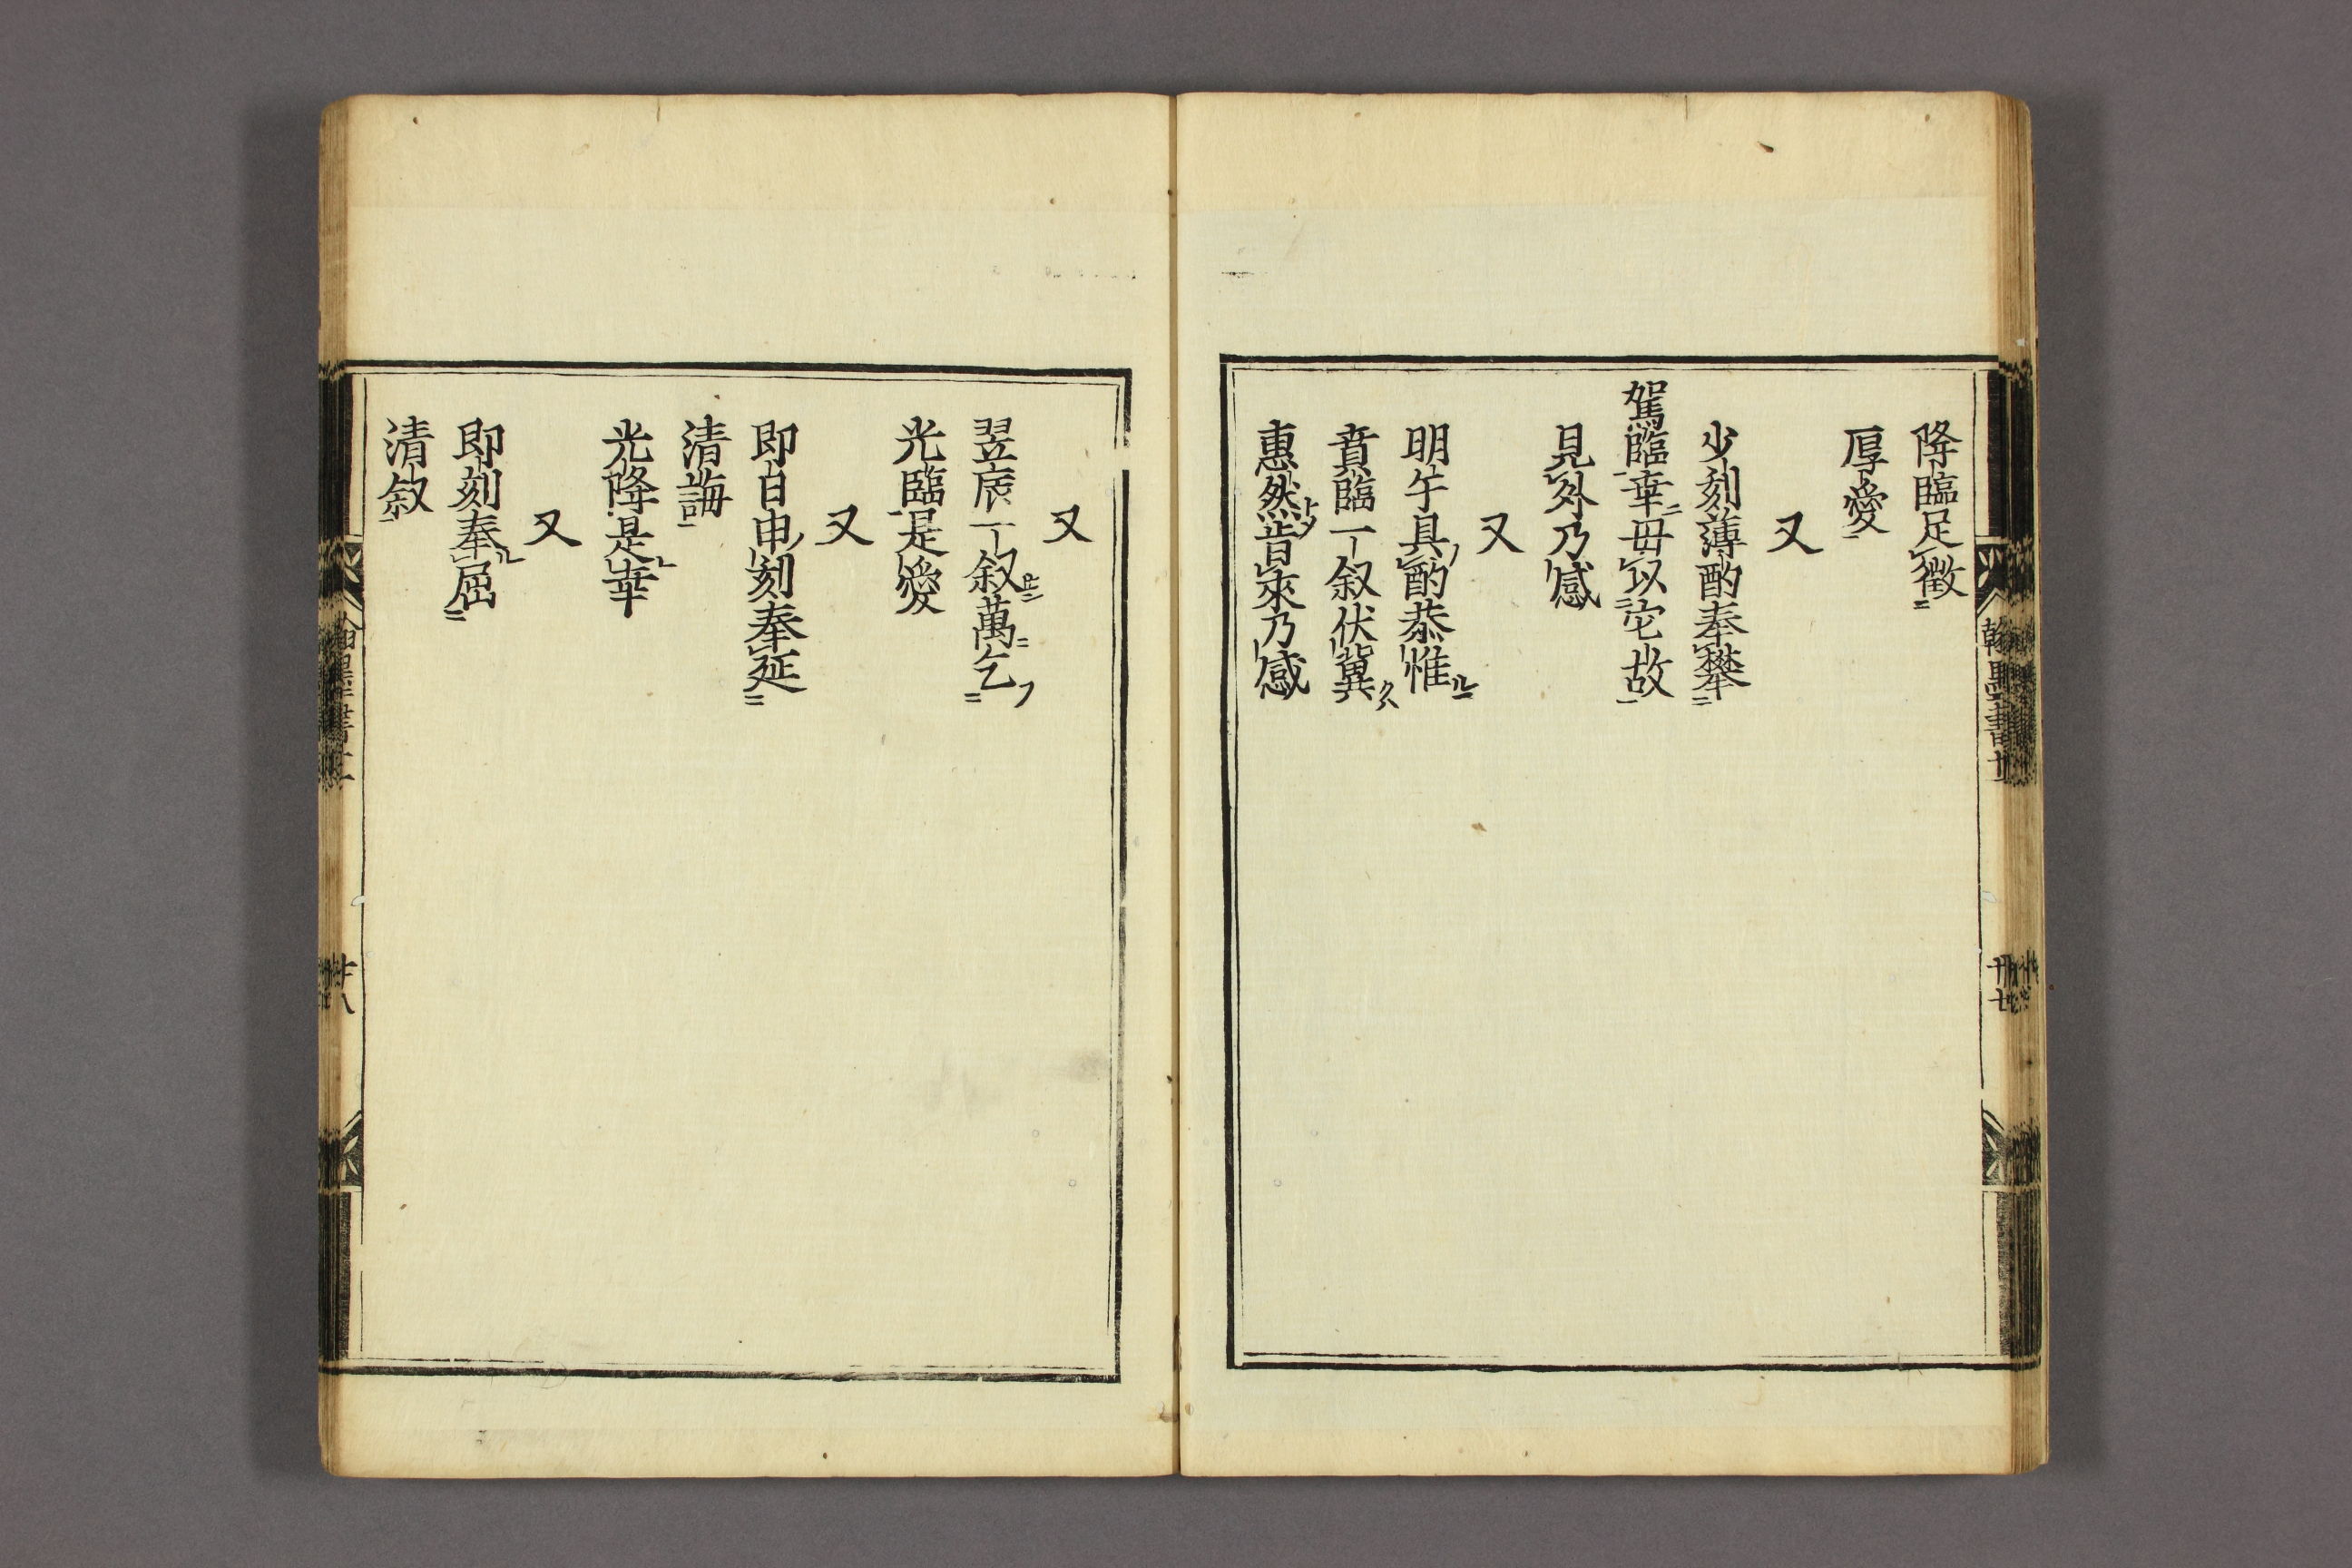 降臨足徵
厚愛
又
少刻薄酌奉攀
駕臨幸毋以它故
見外乃感
又
明午具酌恭惟
賁臨一叙伏冀
惠然肯來乃感
翰墨書
卅七
又
翌辰一叙萬乞
光臨是愛
又
即日申刻奉延
清誨
光降是幸
又
即刻奉屈
清叙